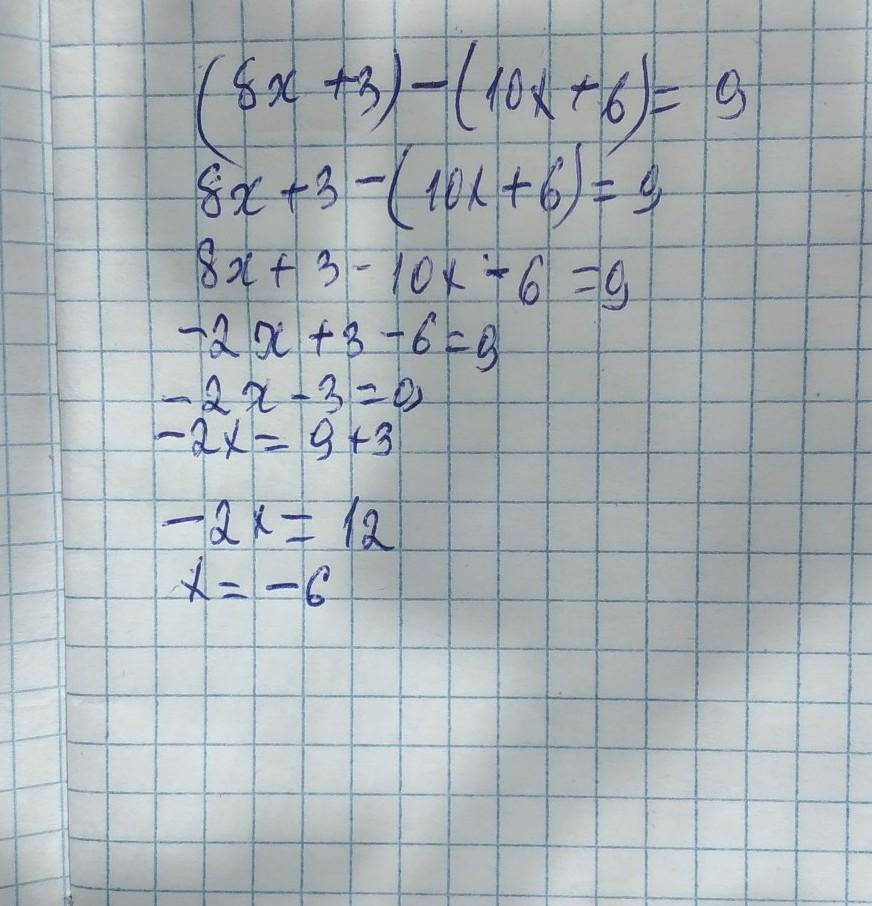 (8x+3)-(10x+6)=9
8x+3-(10x+6)=9
8x+3-10x-6=9
-2x+3-6=9
-2x-3=9
-2x=9+3
-2x=12
x=-6